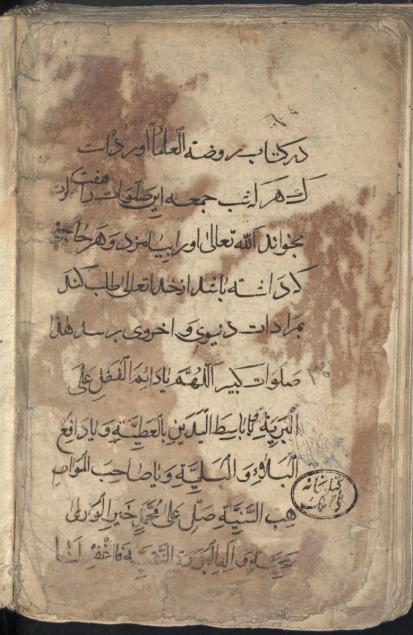 در کتاب روضه العلما آورده است
که هر که شب جمعه این صلوات را هفت
بخواند الله تعالی او را بیامرزد و هر حاجتی
که داشته باشد از خدا تعالی طلب کند
بمرادات دنیوی و اخروی برسد هذا
صلوات کبیر اللهم یا دائم الفضل علی
البریة یا باسط الیدین بالعطیة و یا دافع
البلاء و البلیة و یا صاحب المواهب
السنیة صل علی محمد خیر الوری
و آله البررة النقیة فاغفر لنا
کتابخانه